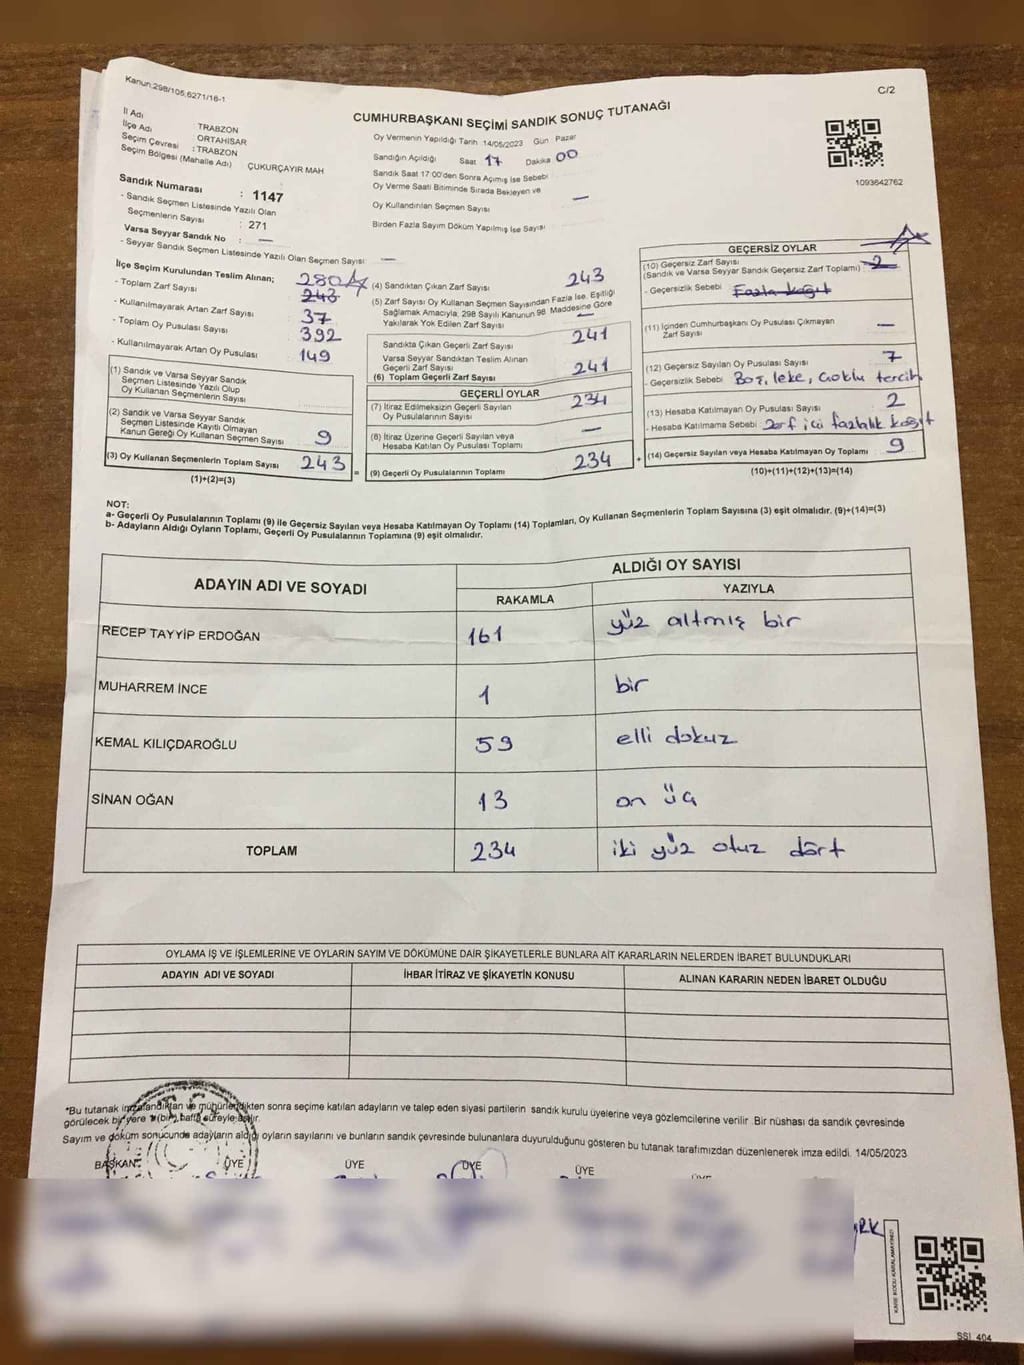 Kanun:298/105,6271/16-1
C/2
CUMHURBAŞKANI SEÇİMİ SANDIK SONUÇ TUTANAĞI
İl Adı : TRABZON
İlçe Adı : ORTAHİSAR
Seçim Çevresi : TRABZON
Seçim Bölgesi (Mahalle Adı) : ÇUKURÇAYIR MAH
Sandık Numarası : 1147
- Sandık Seçmen Listesinde Yazılı Olan
Seçmenlerin Sayısı : 271
Varsa Seyyar Sandık No : —
- Seyyar Sandık Seçmen Listesinde Yazılı Olan Seçmen Sayısı : —
Oy Vermenin Yapıldığı Tarih 14/05/2023 Gün Pazar
Sandığın Açıldığı Saat 17 Dakika 00
Sandık Saat 17:00'den Sonra Açımış İse Sebebi
Oy Verme Saati Bitiminde Sırada Bekleyen ve
Oy Kullandırılan Seçmen Sayısı —
Birden Fazla Sayım Döküm Yapılmış İse Sayısı
1093642762
İlçe Seçim Kurulundan Teslim Alınan; 280
- Toplam Zarf Sayısı 243
- Kullanılmayarak Artan Zarf Sayısı 37
- Toplam Oy Pusulası Sayısı 392
- Kullanılmayarak Artan Oy Pusulası 149
(1) Sandık ve Varsa Seyyar Sandık
Seçmen Listesinde Yazılı Olup
Oy Kullanan Seçmenlerin Sayısı
(2) Sandık ve Varsa Seyyar Sandık
Seçmen Listesinde Kayıtlı Olmayan
Kanun Gereği Oy Kullanan Seçmen Sayısı 9
(3) Oy Kullanan Seçmenlerin Toplam Sayısı 243
(1)+(2)=(3)
(4) Sandıktan Çıkan Zarf Sayısı 243
(5) Zarf Sayısı Oy Kullanan Seçmen Sayısından Fazla İse, Eşitliği
Sağlamak Amacıyla, 298 Sayılı Kanunun 98. Maddesine Göre
Yakılarak Yok Edilen Zarf Sayısı —
Sandıkta Çıkan Geçerli Zarf Sayısı 241
Varsa Seyyar Sandıktan Teslim Alınan
Geçerli Zarf Sayısı
(6) Toplam Geçerli Zarf Sayısı 241
GEÇERLİ OYLAR
(7) İtiraz Edilmeksizin Geçerli Sayılan
Oy Pusulalarının Sayısı 234
(8) İtiraz Üzerine Geçerli Sayılan veya
Hesaba Katılan Oy Pusulası Toplamı —
(9) Geçerli Oy Pusulalarının Toplamı 234
GEÇERSİZ OYLAR
(10) Geçersiz Zarf Sayısı
(Sandık ve Varsa Seyyar Sandık Geçersiz Zarf Toplamı) 2
- Geçersizlik Sebebi Fazla kağıt
(11) İçinden Cumhurbaşkanı Oy Pusulası Çıkmayan
Zarf Sayısı —
(12) Geçersiz Sayılan Oy Pusulası Sayısı 7
- Geçersizlik Sebebi Boş, leke, çoklu tercih
(13) Hesaba Katılmayan Oy Pusulası Sayısı 2
- Hesaba Katılmama Sebebi Zarf içi fazlalık kağıt
(14) Geçersiz Sayılan veya Hesaba Katılmayan Oy Toplamı 9
(10)+(11)+(12)+(13)=(14)
NOT:
a- Geçerli Oy Pusulalarının Toplamı (9) ile Geçersiz Sayılan veya Hesaba Katılmayan Oy Toplamı (14) Toplamları, Oy Kullanan Seçmenlerin Toplam Sayısına (3) eşit olmalıdır. (9)+(14)=(3)
b- Adayların Aldığı Oyların Toplamı, Geçerli Oy Pusulalarının Toplamına (9) eşit olmalıdır.
ADAYIN ADI VE SOYADI
ALDIĞI OY SAYISI
RAKAMLA YAZIYLA
RECEP TAYYİP ERDOĞAN 161 yüz altmış bir
MUHARREM İNCE 1 bir
KEMAL KILIÇDAROĞLU 59 elli dokuz
SİNAN OĞAN 13 on üç
TOPLAM 234 iki yüz otuz dört
OYLAMA İŞ VE İŞLEMLERİNE VE OYLARIN SAYIM VE DÖKÜMÜNE DAİR ŞİKAYETLERLE BUNLARA AİT KARARLARIN NELERDEN İBARET BULUNDUKLARI
ADAYIN ADI VE SOYADI İHBAR İTİRAZ VE ŞİKAYETİN KONUSU ALINAN KARARIN NEDEN İBARET OLDUĞU
*Bu tutanak imzalandıktan ve mühürlendikten sonra seçime katılan adayların ve talep eden siyasi partilerin sandık kurulu üyelerine veya gözlemcilerine verilir. Bir nüshası da sandık çevresinde
görülecek bir yere 1 (bir) hafta süreyle asılır.
Sayım ve döküm sonucunda adayların aldığı oyların sayılarını ve bunların sandık çevresinde bulunanlara duyurulduğunu gösteren bu tutanak tarafımızdan düzenlenerek imza edildi. 14/05/2023
BAŞKAN ÜYE ÜYE ÜYE ÜYE ÜYE
T.C.
SSİ 404